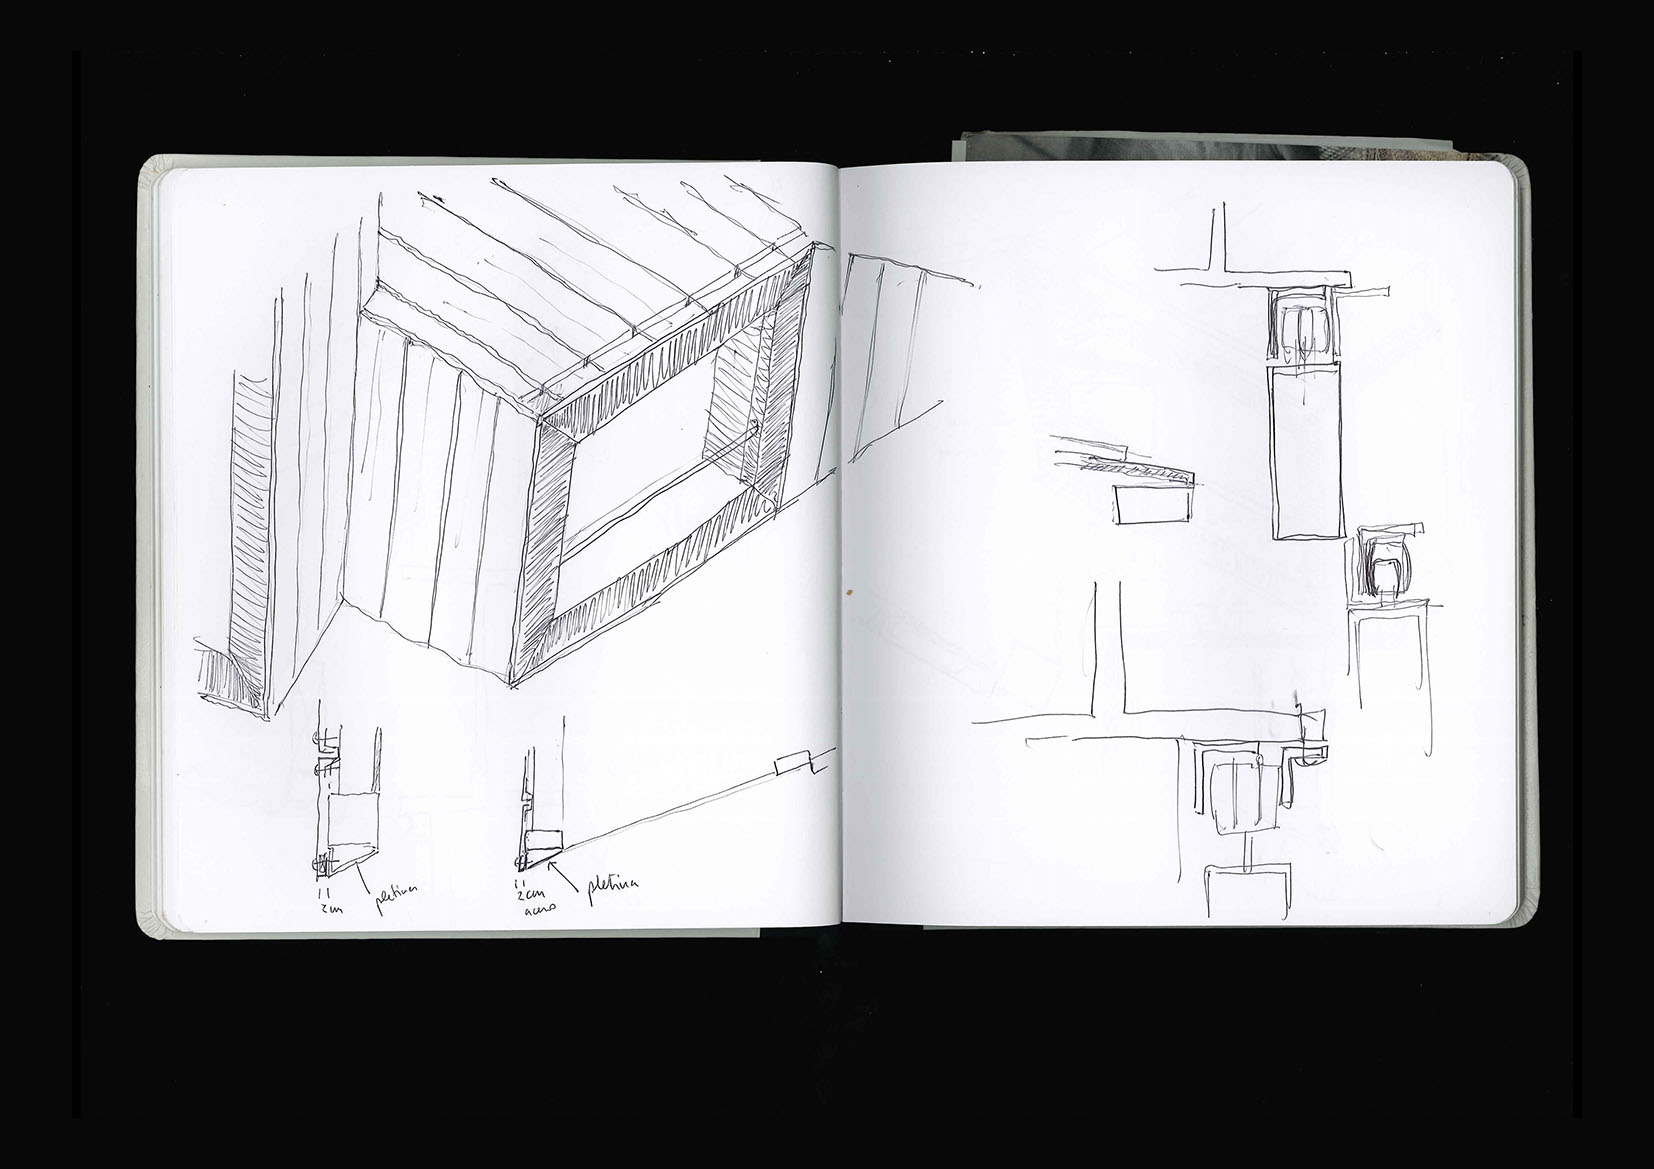 2cm
pletina
2cm
acero
pletina